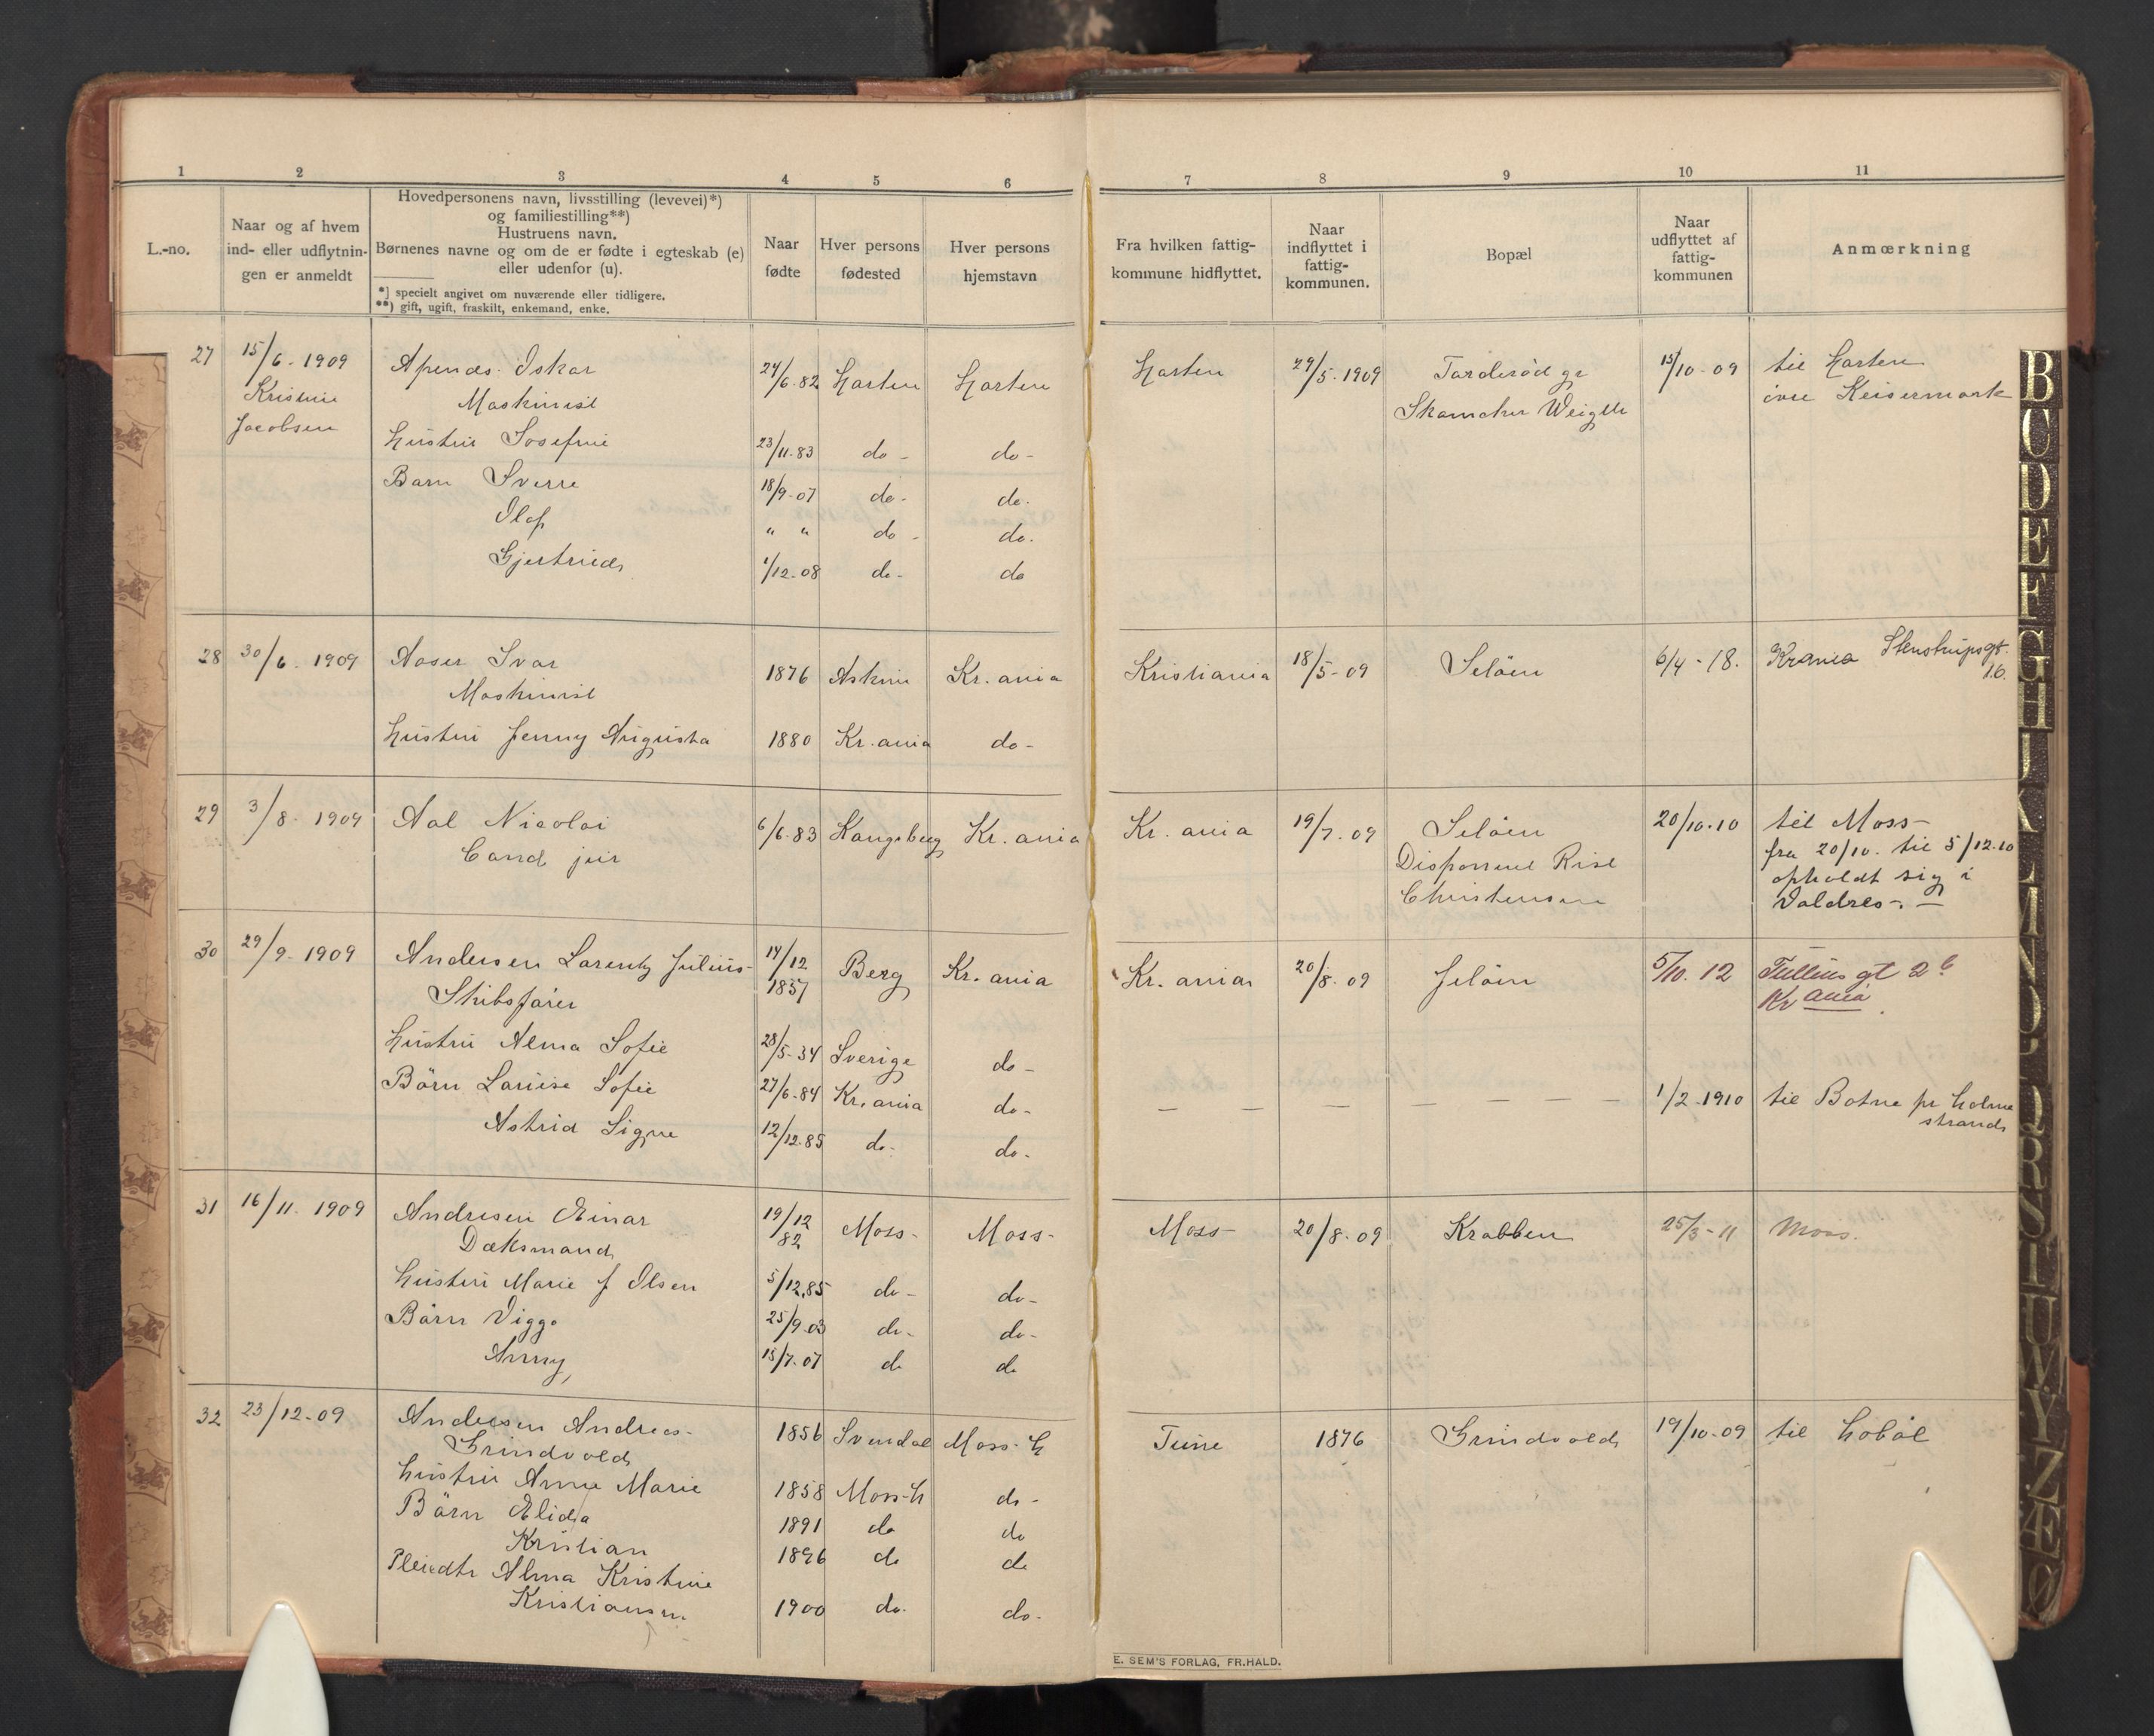 1 2 3 4 5 6 7 8 9 10 11
L.-no.
Naar og af hvem
ind- eller udflytnin-
gen er anmeldt
Hovedpersonens navn, livsstilling (levevei)*)
og familiestilling**)
Hustruens navn.
Børnenes navne og om de er fødte i egteskab (e)
eller udenfor (u).
*) specielt angivet om nuværende eller tidligere.
**) gift, ugift, fraskilt, enkemand, enke.
Naar
fødte
Hver persons
fødested
Hver persons
hjemstavn
Fra hvilken fattig-
kommune hidflyttet.
Naar
indflyttet i
fattig-
kommunen.
Bopæl
Naar
udflyttet af
fattig-
kommunen
Anmærkning
27 15/6. 1909 Apenæs Oskar 24/6.82 Horten Horten Horten 29/5.1909 Tarderød gr 15/10-09 til Horten
Kristine Maskinist Weigtle øvre Keisermark
Jacobsen
Hustru Josefine 23/11.83 do- do-
Barn Sverre 18/9-07 do- do.
Olaf " " do- do.
Gjertrud 1/12-08 do- do
28 30/6. 1909 Aaser Ivar 1876 Askim Kr.ania Kristiania 18/5-09 Jeløen 6/4-18. Krania Stenstrupsgt.
Maskinist 16.
Hustru Jenny Augusta 1880 Kr.ania do-
29 3/8. 1909 Aal Nicolai 6/6.83 Kongsberg Kr.ania Kr.ania 19/7.09 Jeløen 20/10.10 til Moss-
Cand jur Disponent Rist fra 20/10. til 5/12.10
Christensen opholdt sig i
Valdres. -
30 29/9. 1909 Andersen Larentz Julius- 14/12 Berg Kr.ania Kr.ania 20/8.09 Jeløen 5/10.12 Tullins gt 2 b
Skibsfører 1837 Kr ania.
Hustru Alma Sofie 28/5-34 Sverige do-
Børn Lauise Sofie 27/6-84 Kr.ania do- — — — — — — — 1/2.1910 til Botne pr Holme
Astrid Signe 12/12.85 do- do- strand
31 16/11. 1909 Andresen Einar 19/12 Moss- Moss- Moss 20/8.09 Krabben 25/3-11 Moss.
Dæksmand 82
Hustru Marie J Olsen 5/12.85 do- do-
Børn Viggo 25/9.03 do- do-
Anny 15/7.07 do do
32 23/12-09 Andersen Andreas- 1856 Svendal Moss-H Tune 1876 Grindvold 19/10-09 til Hobøl
Grindvold
Hustru Anne Marie 1858 Moss-H do-
Børn Elida 1891 do do
Kristian 1896 do do
Pleiedtr Alma Kristine
Kristiansen 1900 do. do.
E. SEM'S FORLAG, FR.HALD.
B
C
D
E
F
G
H
I
K
L
M
N
O
P
Q
R
S
T
U
W
Y
Z
Æ
Ø